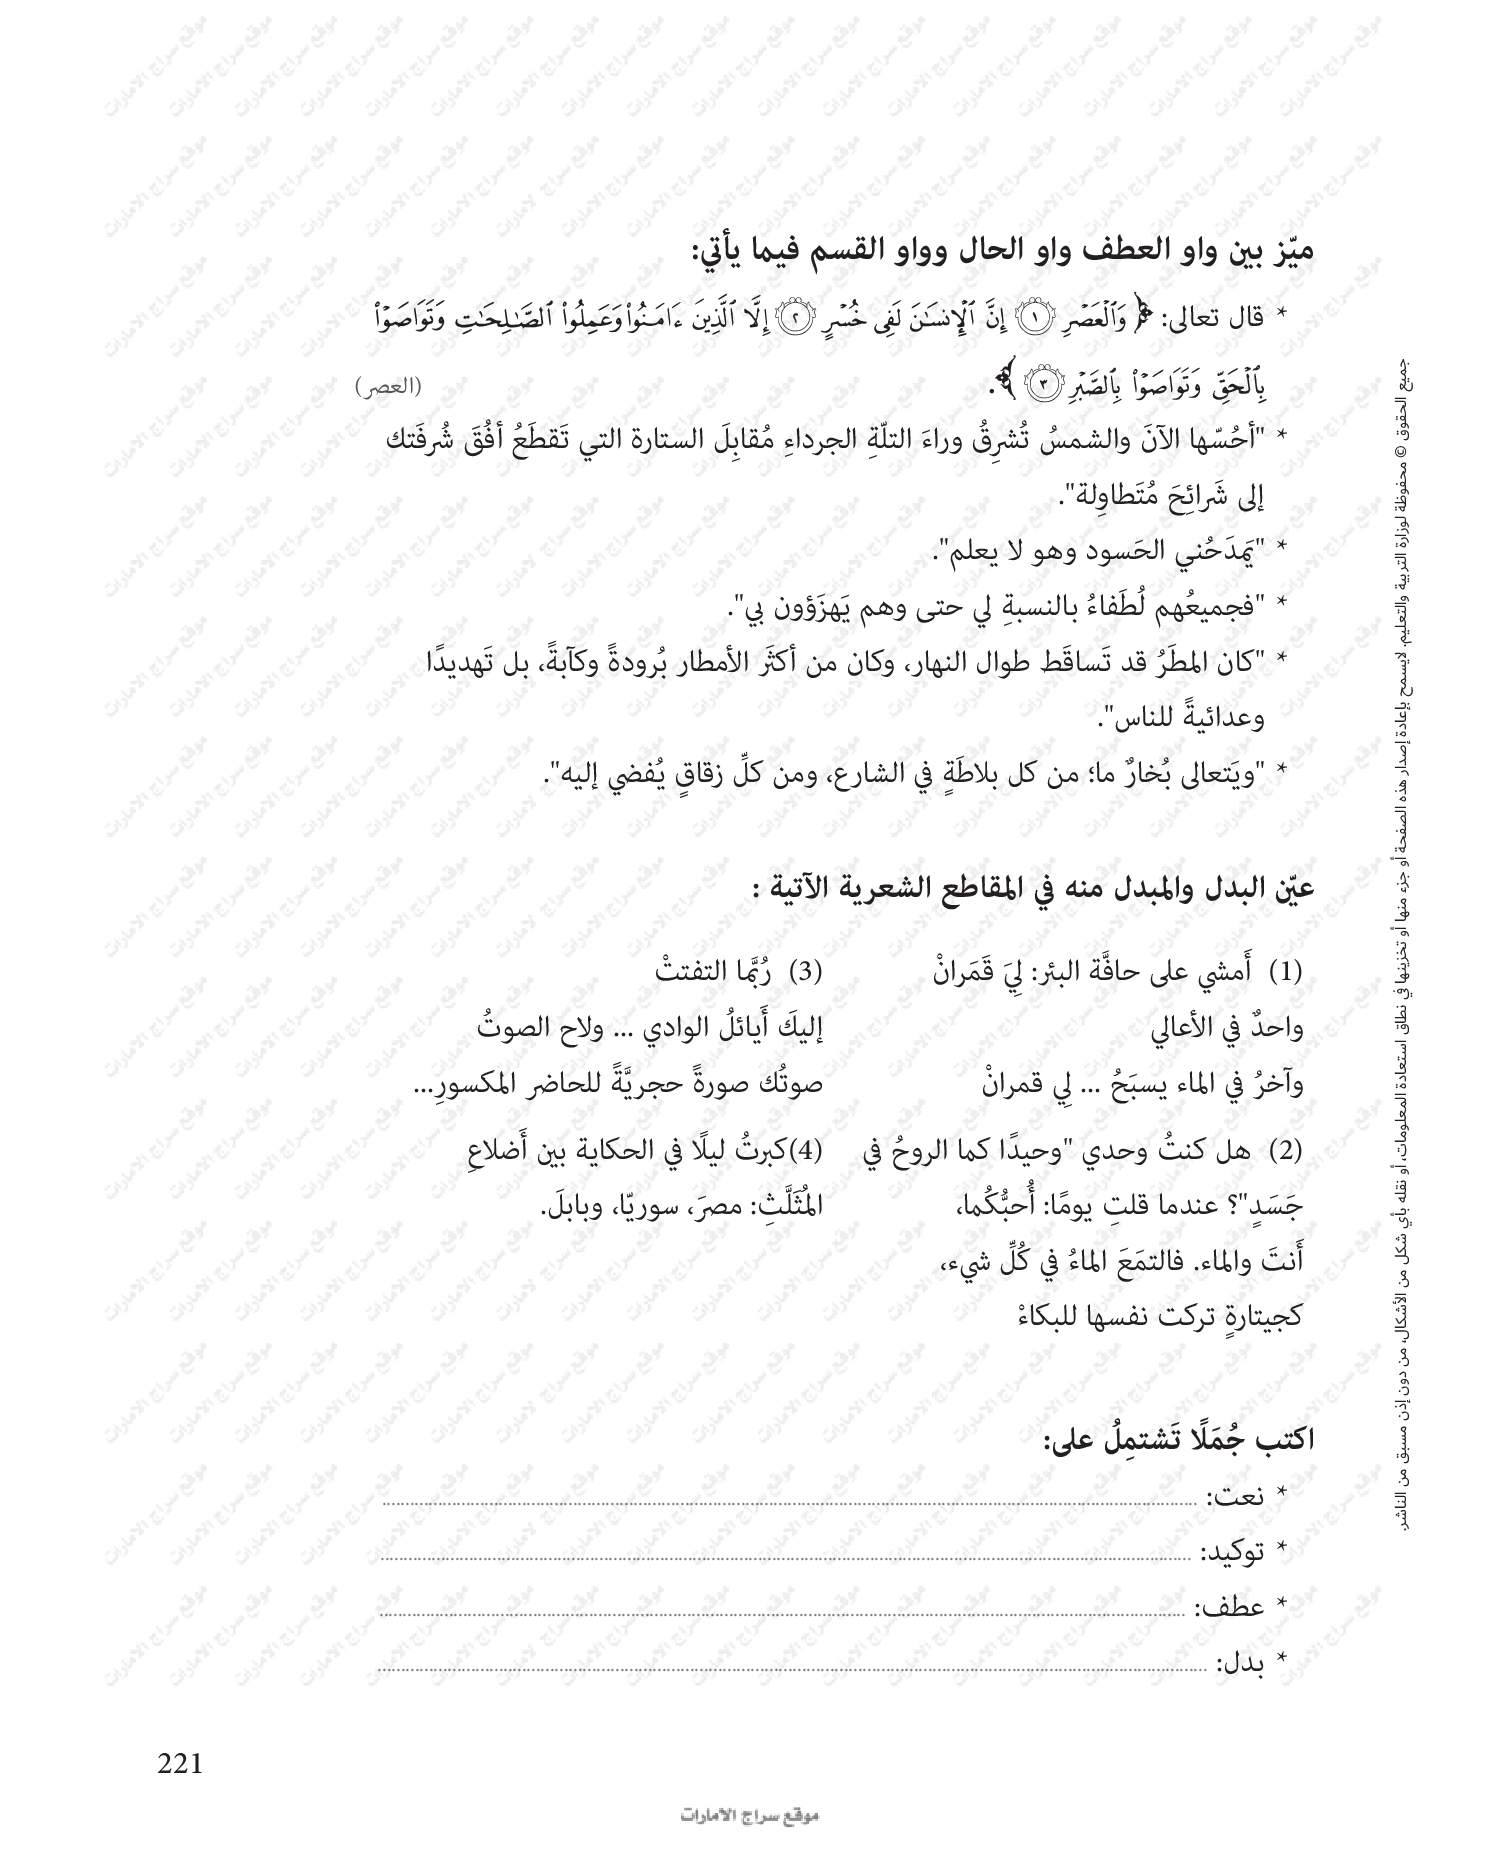 ميّز بين واو العطف واو الحال وواو القسم فيما يأتي:
* قال تعالى: ﴿ وَٱلۡعَصۡرِ ۝١ إِنَّ ٱلۡإِنسَـٰنَ لَفِى خُسۡرٍ ۝٢ إِلَّا ٱلَّذِينَ ءَامَنُوا۟ وَعَمِلُوا۟ ٱلصَّـٰلِحَـٰتِ وَتَوَاصَوۡا۟
بِٱلۡحَقِّ وَتَوَاصَوۡا۟ بِٱلصَّبۡرِ ۝٣ ﴾. (العصر)
* "أحُسّها الآنَ والشمسُ تُشرِقُ وراءَ التلّةِ الجرداءِ مُقابِلَ الستارة التي تَقطَعُ أفُقَ شُرفَتك
إلى شَرائِحَ مُتَطاوِلة".
* "يَمدَحُني الحَسود وهو لا يعلم".
* "فجميعُهم لُطَفاءُ بالنسبةِ لي حتى وهم يَهزَؤون بي".
* "كان المطَرُ قد تَساقَط طوال النهار، وكان من أكثَر الأمطار بُرودةً وكآبةً، بل تَهديدًا
وعدائيةً للناس".
* "ويَتعالى بُخارٌ ما؛ من كل بلاطَةٍ في الشارع، ومن كلِّ زقاقٍ يُفضي إليه".
عيّن البدل والمبدل منه في المقاطع الشعرية الآتية :
(1) أَمشي على حافَّة البئر: لِيَ قَمَرانْ
واحدٌ في الأعالي
وآخرُ في الماء يسبَحُ ... لِي قمرانْ
(2) هل كنتُ وحدي "وحيدًا كما الروحُ في
جَسَدٍ"؟ عندما قلتِ يومًا: أُحبُّكُما،
أَنتَ والماء. فالتمَعَ الماءُ في كُلِّ شيء،
كجيتارةٍ تركت نفسها للبكاءْ
(3) رُبَّما التفتتْ
إليكَ أَيائلُ الوادي ... ولاح الصوتُ
صوتُك صورةً حجريَّةً للحاضر المكسورِ...
(4)كبرتُ ليلًا في الحكاية بين أَضلاعِ
المُثَلَّثِ: مصرَ، سوريّا، وبابلَ.
اكتب جُمَلًا تَشتمِلُ على:
* نعت:
* توكيد:
* عطف:
* بدل:
جميع الحقوق © محفوظة لوزارة التربية والتعليم. لايسمح بإعادة إصدار هذه الصفحة أو جزء منها أو تخزينها في نطاق استعادة المعلومات، أو نقله بأي شكل من الأشكال، من دون إذن مسبق من الناشر.
221
موقع سراج الامارات